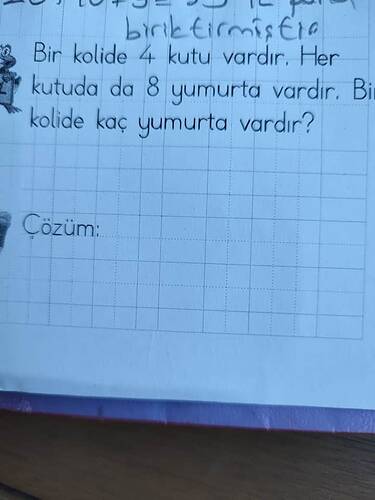 biriktirmiştir
Bir kolide 4 kutu vardır. Her
kutuda da 8 yumurta vardır. Bir
kolide kaç yumurta vardır?
Çözüm: